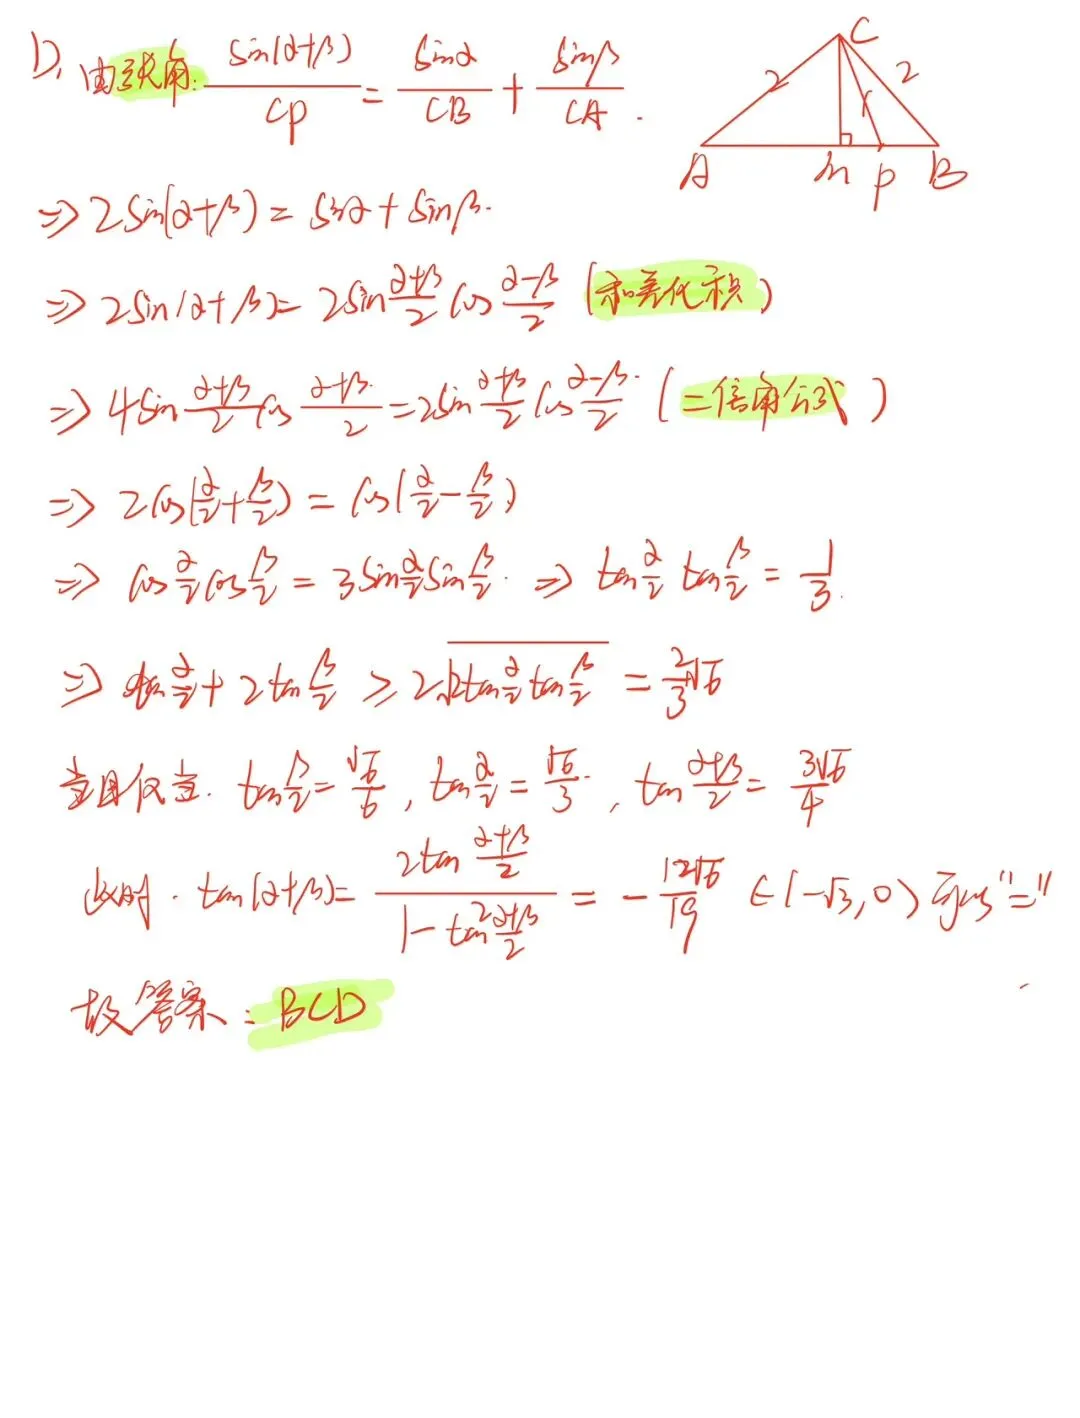 D. 由张角: sin(α+β)/CP = sinα/CB + sinβ/CA.
C
2 1 2
A m P B
⇒ 2sin(α+β) = sinα + sinβ.
⇒ 2sin(α+β) = 2sin (α+β)/2 cos (α-β)/2 (和差化积)
⇒ 4sin (α+β)/2 cos (α+β)/2 = 2sin (α+β)/2 cos (α-β)/2 (二倍角公式)
⇒ 2cos(α/2 + β/2) = cos(α/2 - β/2)
⇒ cos α/2 cos β/2 = 3sin α/2 sin β/2. ⇒ tan α/2 tan β/2 = 1/3.
⇒ tan α/2 + 2tan β/2 ≥ 2√(2tan α/2 tan β/2) = 2/3 √6
当且仅当. tan β/2 = √6/6, tan α/2 = √6/3, tan (α+β)/2 = 3√6/4
此时. tan(α+β) = 2tan (α+β)/2 / (1 - tan² (α+β)/2) = - 12√6/19 ∈ (-√3, 0) 可取"="
故答案: BCD